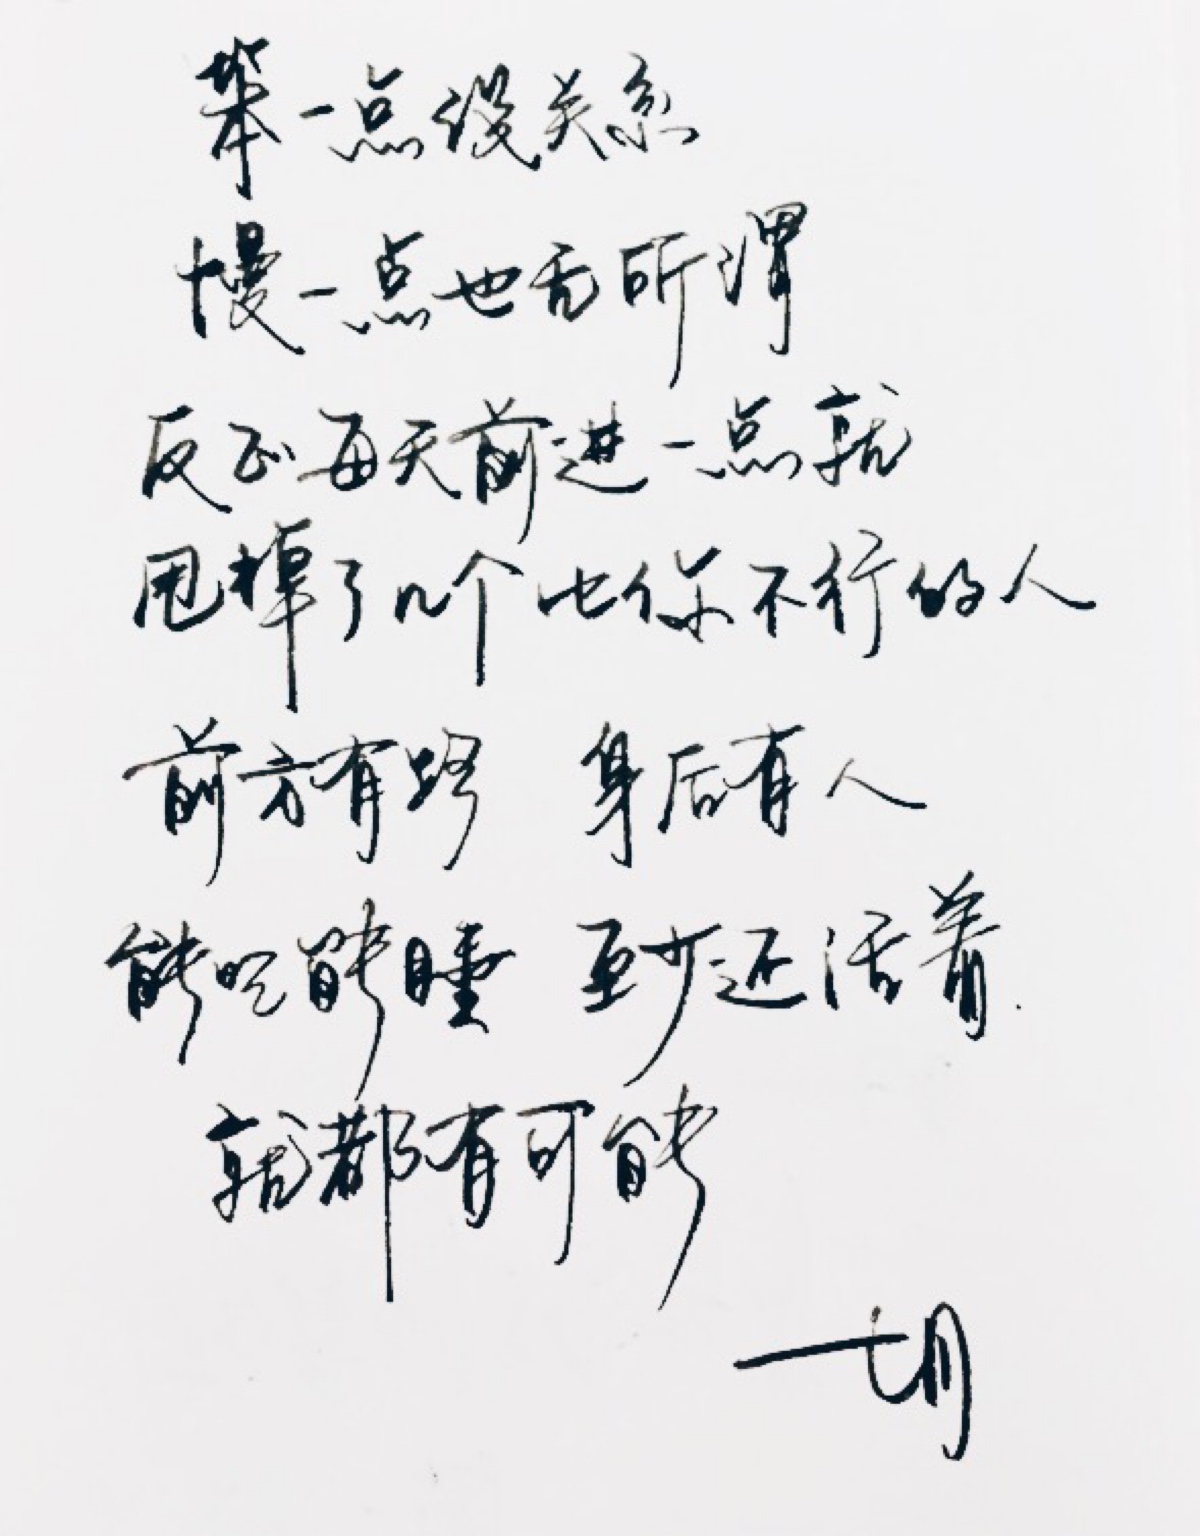 笨一点没关系
慢一点也无所谓
反正每天前进一点就
甩掉了几个比你不行的人
前方有路 身后有人
能吃能睡 至少还活着.
就都有可能
一七月